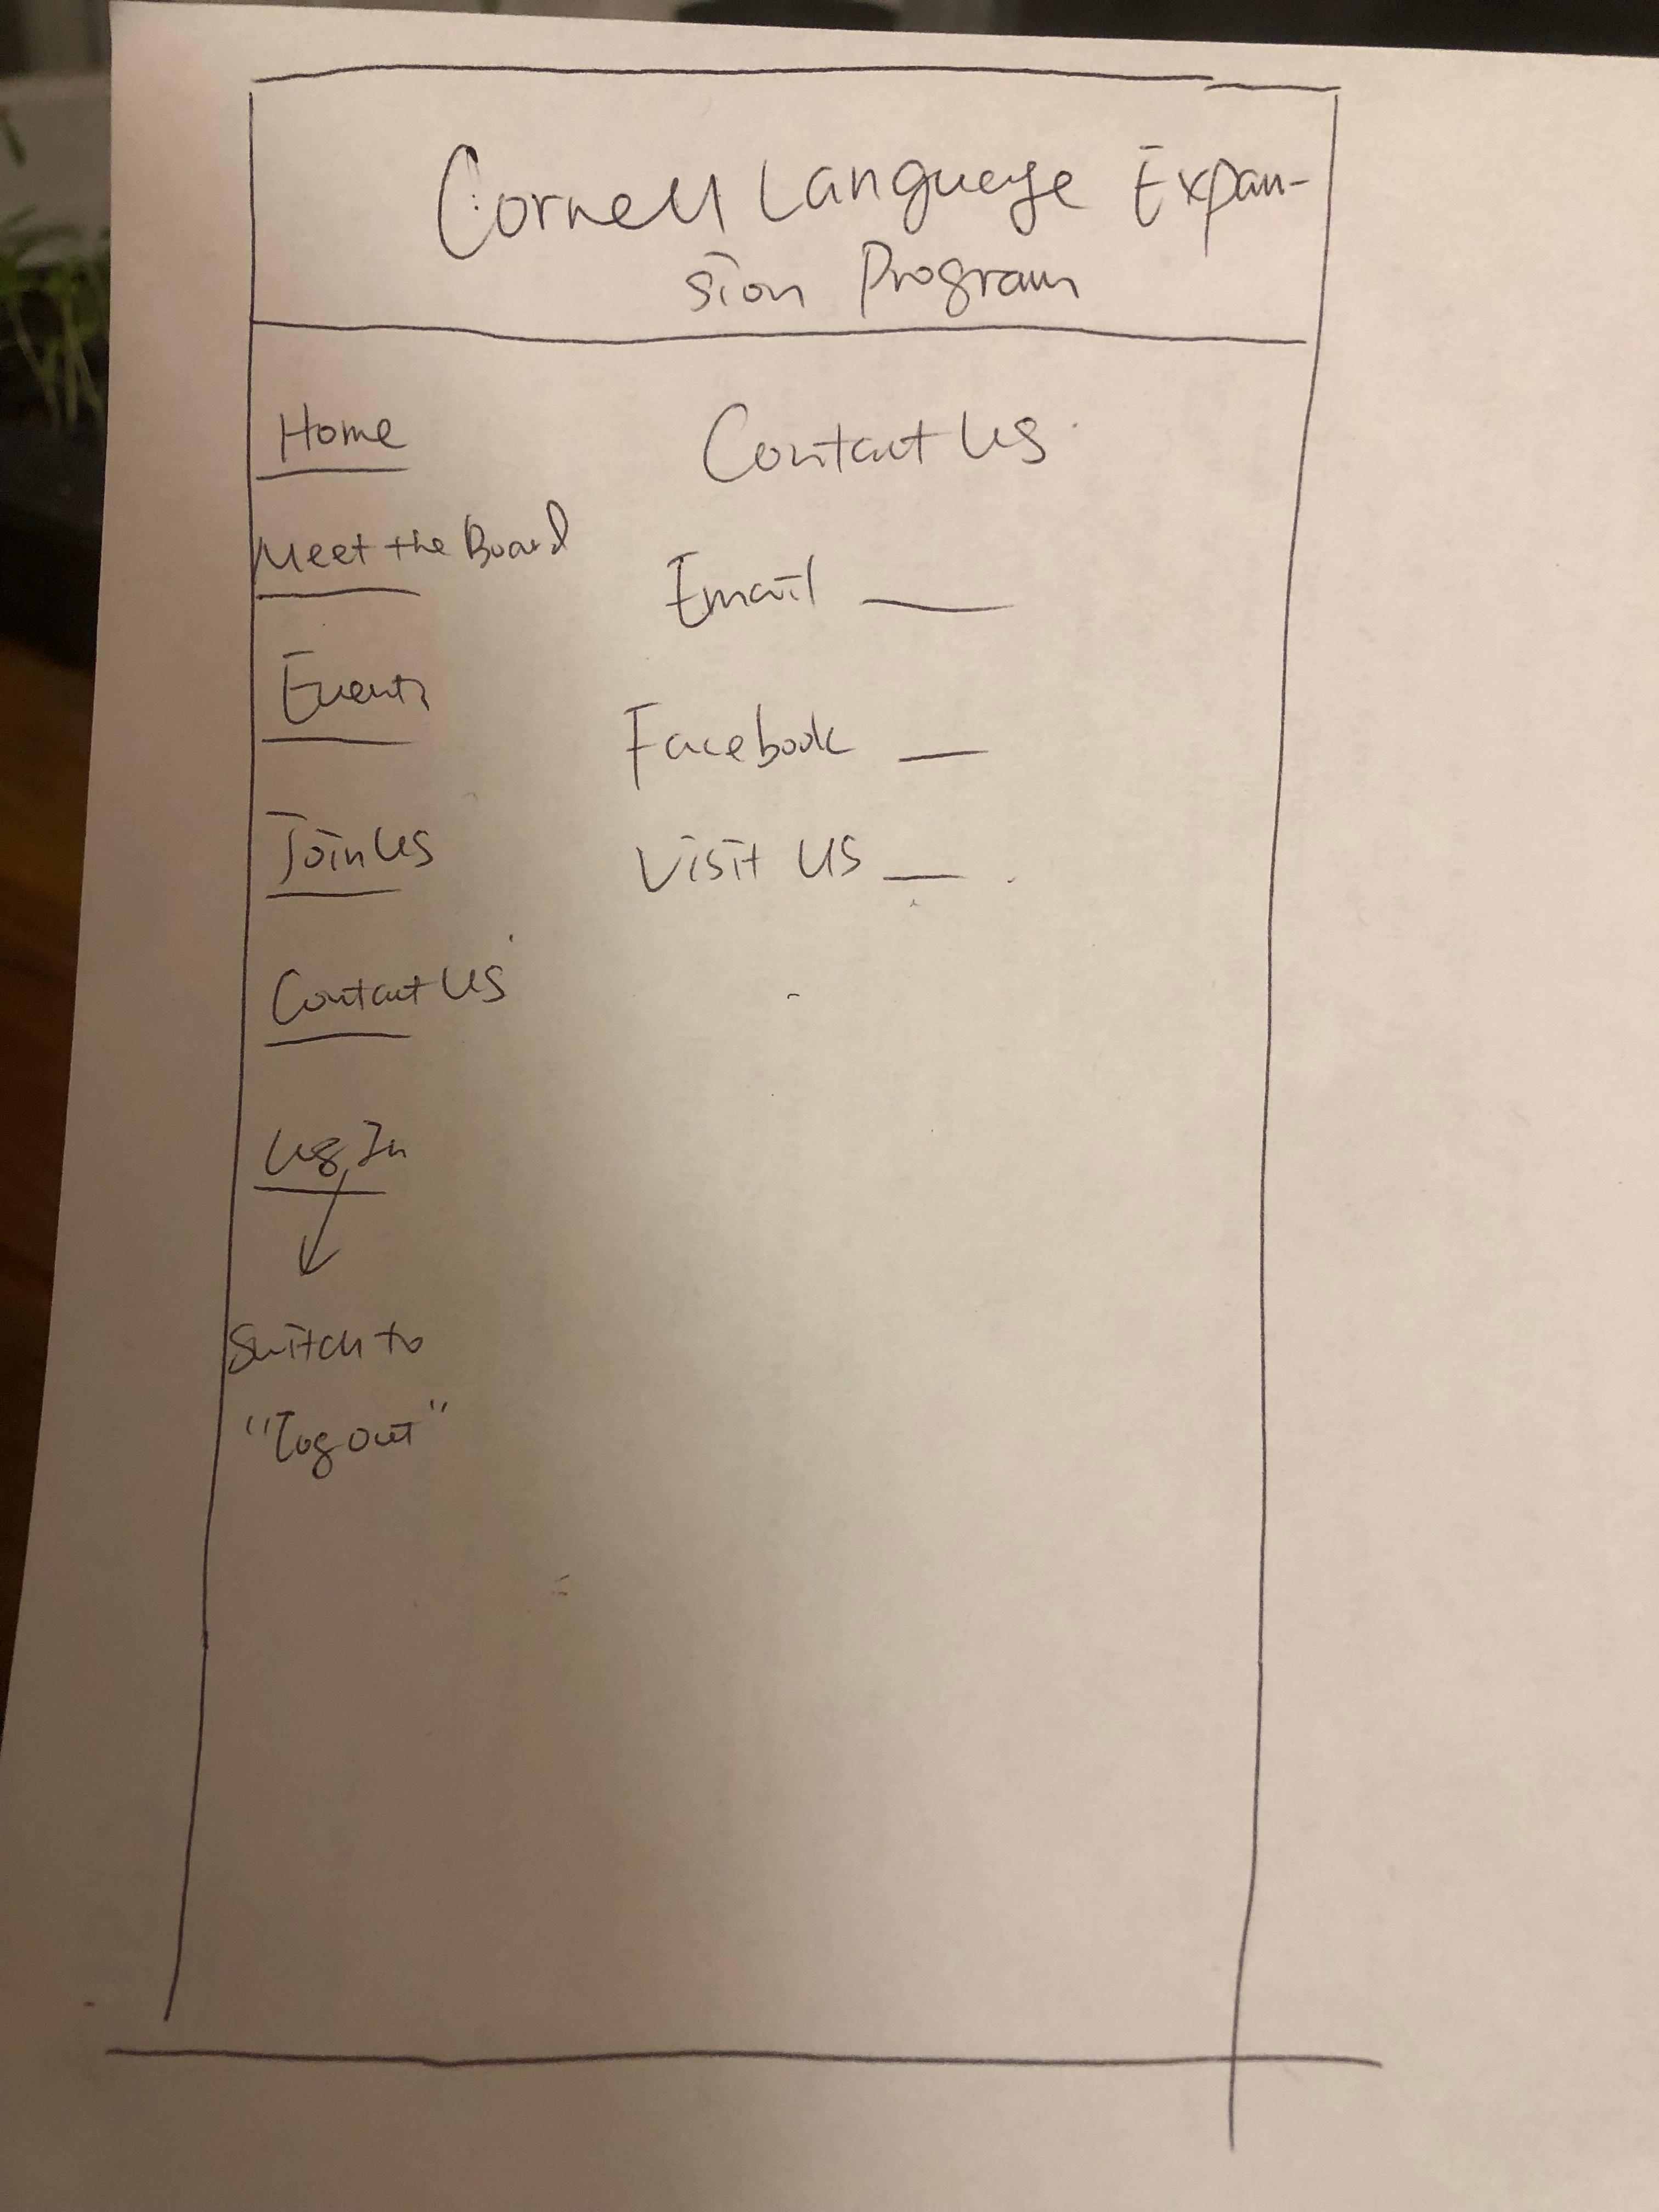 Cornell Language Expan-
sion Program
Home
Meet the Board
Events
Join Us
Contact Us
Log In
Switch to
"Log out"
Contact Us
Email
Facebook
Visit Us